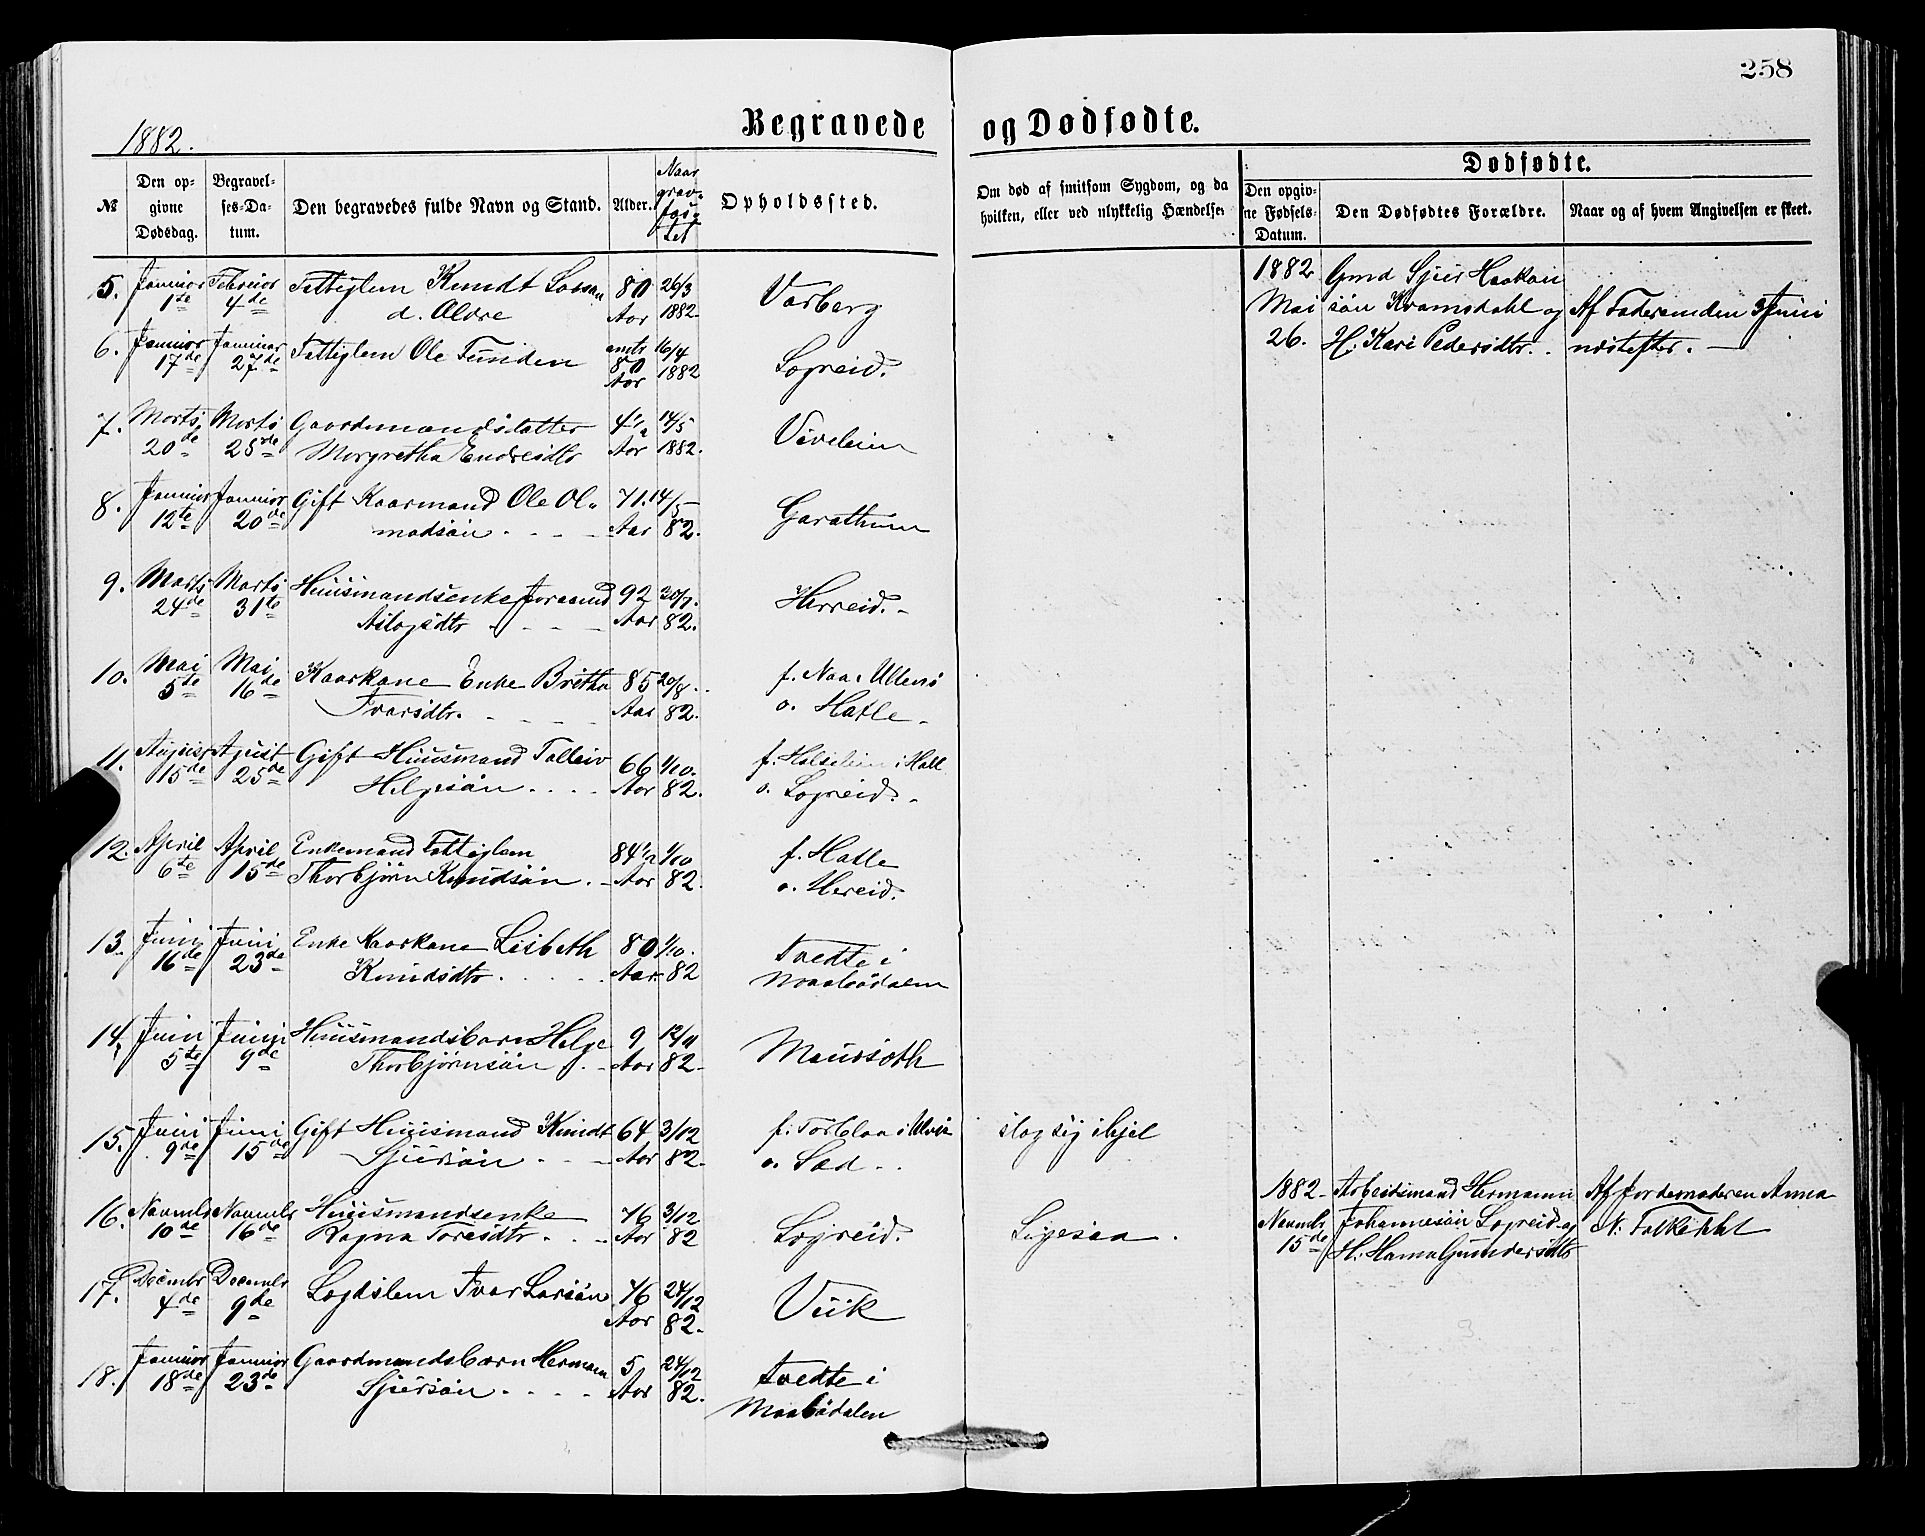 258
Begravede og Dødfødte.
1882.
Dødfødte.
№
Den opgivne Dødsdag.
Begravelses-Datum.
Den begravedes fulde Navn og Stand.
Alder.
Naar grav-
Opholdssted.
Om død af smitsom Sygdom, og da hvilken, eller ved ulykkelig Hændelse.
Den opgivne Fødsels-Datum.
Den Dødfødtes Forældre.
Naar og af hvem Angivelsen er skeet.
5. Januar Februar Fattiglem Knudt 80 26/3 Varberg
1te 4de d. Aldre Aar 1882
1882 Gmd Sjur Haakon
Mai sön Kvamsdahl og Af Faderen den 3 Juni
26. H. Kari Pedersdtr. næstefter.
6. Januar Januar Fattiglem Ole Tunden 16/4 Lægreid.
17de 27de 80 Aar 1882
7. Marts Marts Gaardmandsdatter 4½ 14/5 Viveleim
20de 25de Margretha Endresdtr Aar 1882.
8. Januar Januar Gift Kaarmand Ole Ol- 71. 14/5 Garathum
12te 20de madsön Aar 82.
9. Marts Marts Huusmandsenke 92 30/7. Herreid.
24de 31te Aslagsdtr Aar 82.
10. Mai Mai Kaarkone Enke Britha 85 20/8. f. Naa i Ullens
5te 16de Ivarsdtr. Aar 82. o. Hatle
11. August Agust Gift Huusmand Tolleiv 66 1/10. f. i Hall
15de 25de Helgesön Aar 82. o. Lægreid.
12. April April Enkemand Fattiglem 84½ 1/10 f. Hatle
6te 15de Thorbjörn Knudsön Aar 82. o. Hereid.
13. Juni Juni Enke Kaarkone Lisbeth 80 1/10. Tvedte i
16de 23de Knudsdtr Aar 82 Maabödalen
14. Juni Juni Huusmandsbarn Helge 9 12/11 Maursæth
5te 9de Thorbjörnsön Aar 82
15. Juni Juni Gift Huusmand Knudt 64 3/12 f. Torblaa i Ulvik slog sig ihjel
9de 15de Sjursön Aar 82. o. Sæd
16. Novmbr Novmbr Huusmandsenke 76 3/12 Lægreid. Ligesaa.
10de 16de Ragna Toresdtr Aar 82
1882 Arbeidsmand Hermann Af Jordemoderen Anna
Novmbr Johannesön Lægreid og N.
15de H. Gundersdtr
17. Decmbr Decmbr Lægdslem Ivar Larsön 76 24/12 Viik
4de 9de Aar 82.
18. Januar Januar Gaardmandsbarn Herman 5 24/12 Tvedte i
18de 23de Sjursön Aar 82. Maabödalen